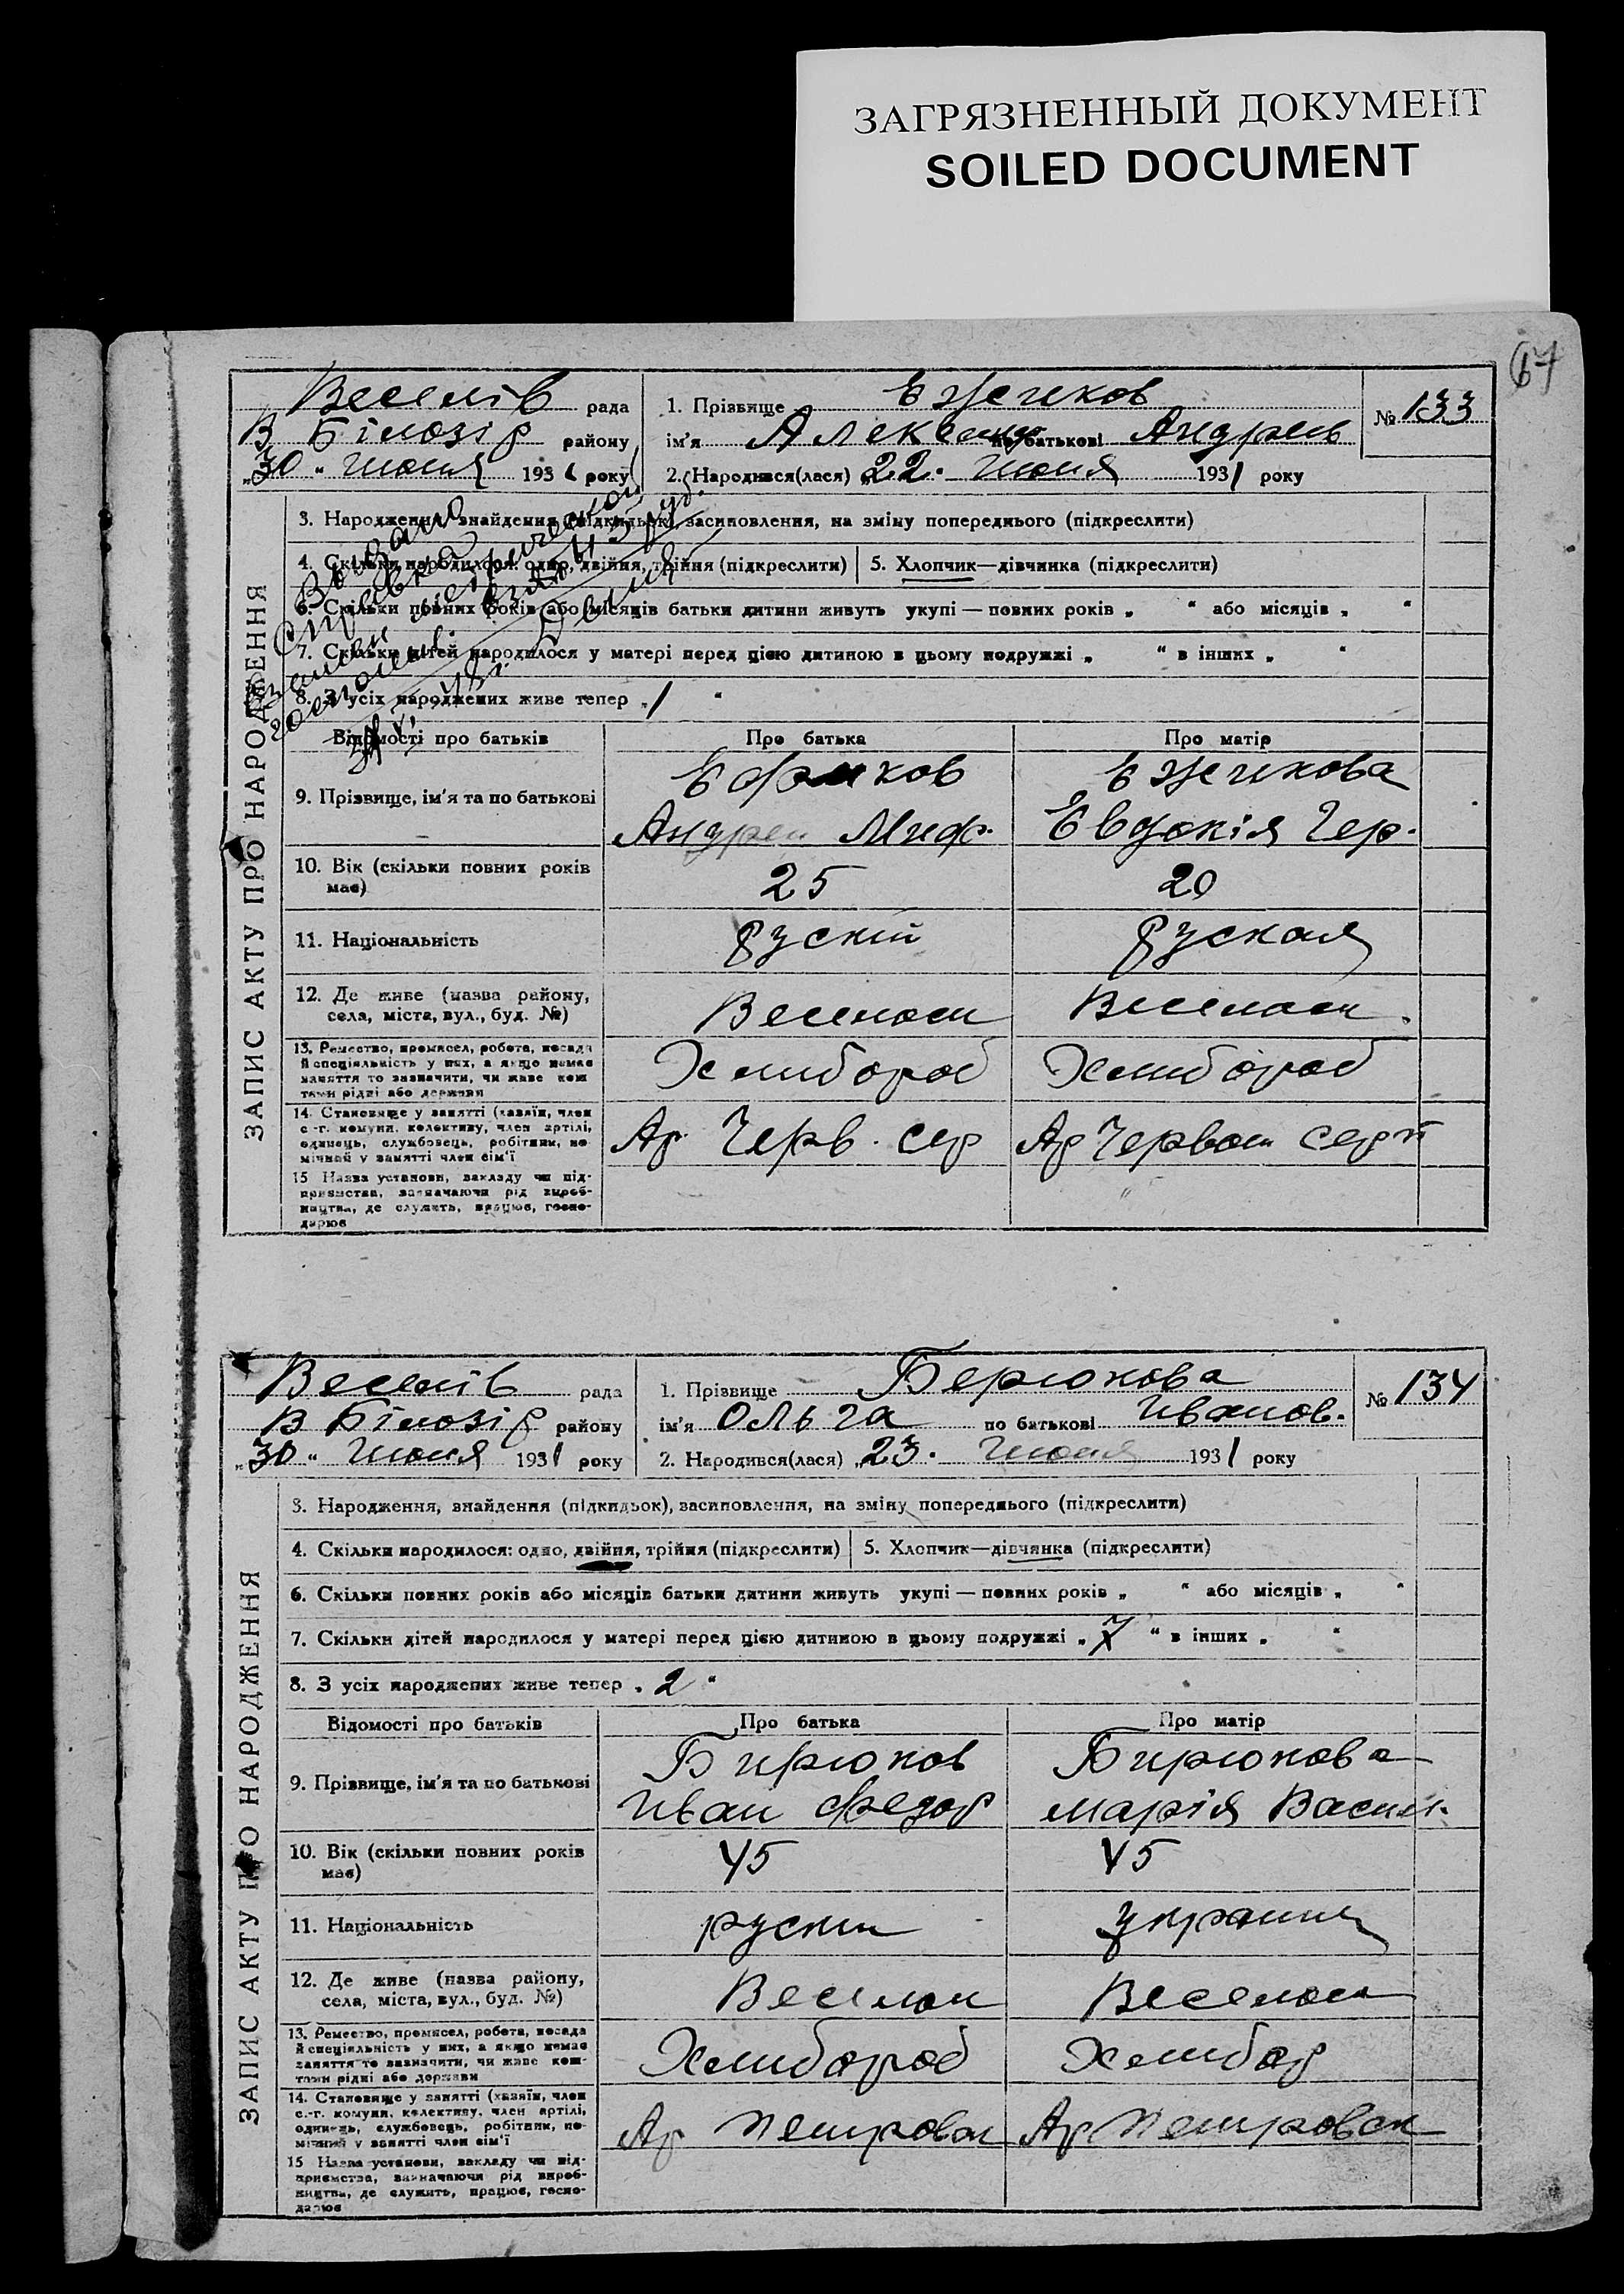 ЗАГРЯЗНЕННЫЙ ДОКУМЕНТ
SOILED DOCUMENT
67
ЗАПИС АКТУ ПРО НАРОДЖЕННЯ
Веселів рада
В Білозір району
„30" июня 1931 року
1. Прізвище Ежечков
№ 133
ім'я Александр по батькові Андрев
2. Народився(лася) „22. июня 1931 року
3. Народження, знайдення (підкидьок), засиновлення, на зміну попереднього (підкреслити)
4. Скільки народилося: одно, двійня, трійня (підкреслити) 5. Хлопчик—дівчинка (підкреслити)
6. Скільки повних років або місяців батьки дитини живуть укупі — повних років „ " або місяців „ "
7. Скільки дітей народилося у матері перед цією дитиною в цьому подружжі „ " в інших „ "
8. З усіх народжених живе тепер „1 "
Видано
справка
Відомості про батьків Про батька Про матір
9. Прізвище, ім'я та по батькові
Ежечкова
Андреи Миф. Евдокія Гер.
10. Вік (скільки повних років має) 25 20
11. Національність рускій руская
12. Де живе (назва району, села, міста, вул., буд. №) Веселом Веселом.
13. Ремество, промисел, робота, посада й спеціяльність у них, а якщо немає заняття то зазначити, чи живе коштами рідні або держави Хлибороб Хлибороб
14. Становище у занятті (хазяїн, член с.-г. комуни, колективу, член артілі, одинець, службовець, робітник, помічний у занятті член сім'ї Ар. Черв. сер Ар Червон серп
15 Назва установи, закладу чи підприємства, зазначаючи рід виробництва, де служить, працює, господарює
ЗАПИС АКТУ ПРО НАРОДЖЕННЯ
Веселів рада
В Білозір району
„30" июня 1931 року
1. Прізвище Берюкова
№ 134
ім'я Ольга по батькові Иванов.
2. Народився(лася) „23. июня 1931 року
3. Народження, знайдення (підкидьок), засиновлення, на зміну попереднього (підкреслити)
4. Скільки народилося: одно, двійня, трійня (підкреслити) 5. Хлопчик—дівчинка (підкреслити)
6. Скільки повних років або місяців батьки дитини живуть укупі — повних років „ " або місяців „ "
7. Скільки дітей народилося у матері перед цією дитиною в цьому подружжі „ " в інших „ "
8. З усіх народжених живе тепер „2 "
Відомості про батьків Про батька Про матір
9. Прізвище, ім'я та по батькові Бирюков Бирюкова
Иван Федор Марія Васил.
10. Вік (скільки повних років має) 45 45
11. Національність руский украинк
12. Де живе (назва району, села, міста, вул., буд. №) Веселом Веселом
13. Ремество, промисел, робота, посада й спеціяльність у них, а якщо немає заняття то зазначити, чи живе коштами рідні або держави Хлибороб Хлибор
14. Становище у занятті (хазяїн, член с.-г. комуни, колективу, член артілі, одинець, службовець, робітник, помічний у занятті член сім'ї Ар Петровск Ар Петровск
15 Назва установи, закладу чи підприємства, зазначаючи рід виробництва, де служить, працює, господарює